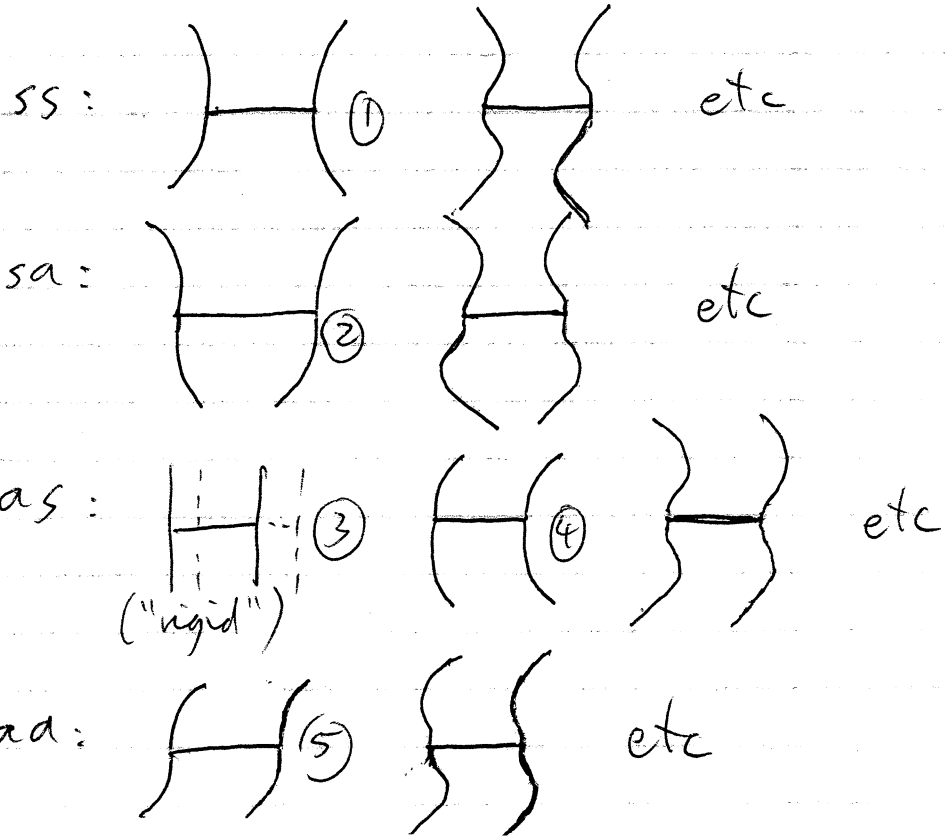 ss: ① etc
sa: ② etc
as: ③ ④ etc
("rigid")
aa: ⑤ etc